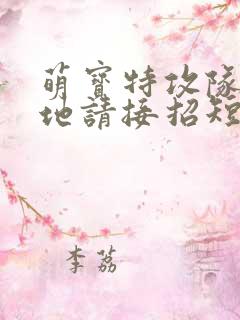 萌寶特攻隊
地請接招短
李荔